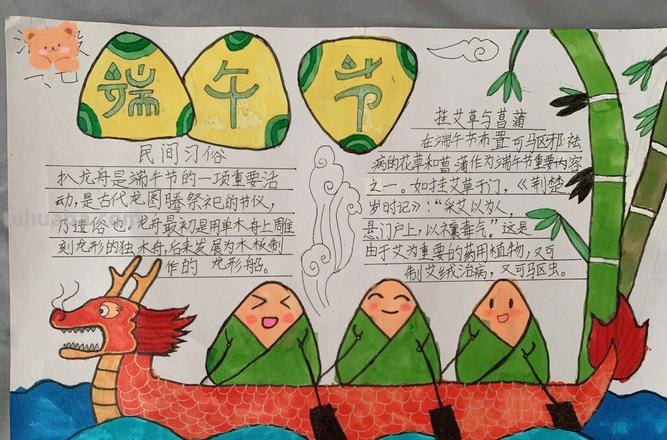 端午节
民间习俗
扒龙舟是端午节的一项重要活
动,是古代龙图腾祭祀的节仪,
乃遗俗也。龙舟最初是用单木舟上雕
刻龙形的独木舟,后来发展为木板制
作的 龙形船。
挂艾草与菖蒲
在端午节布置可驱邪祛
病的花草和菖蒲作为端午节重要内容
之一。如挂艾草于门,《荆楚
岁时记》:“采艾以为人,
悬门户上,以禳毒气。”这是
由于艾为重要的药用植物,又可
制艾绒治病,又可驱虫。